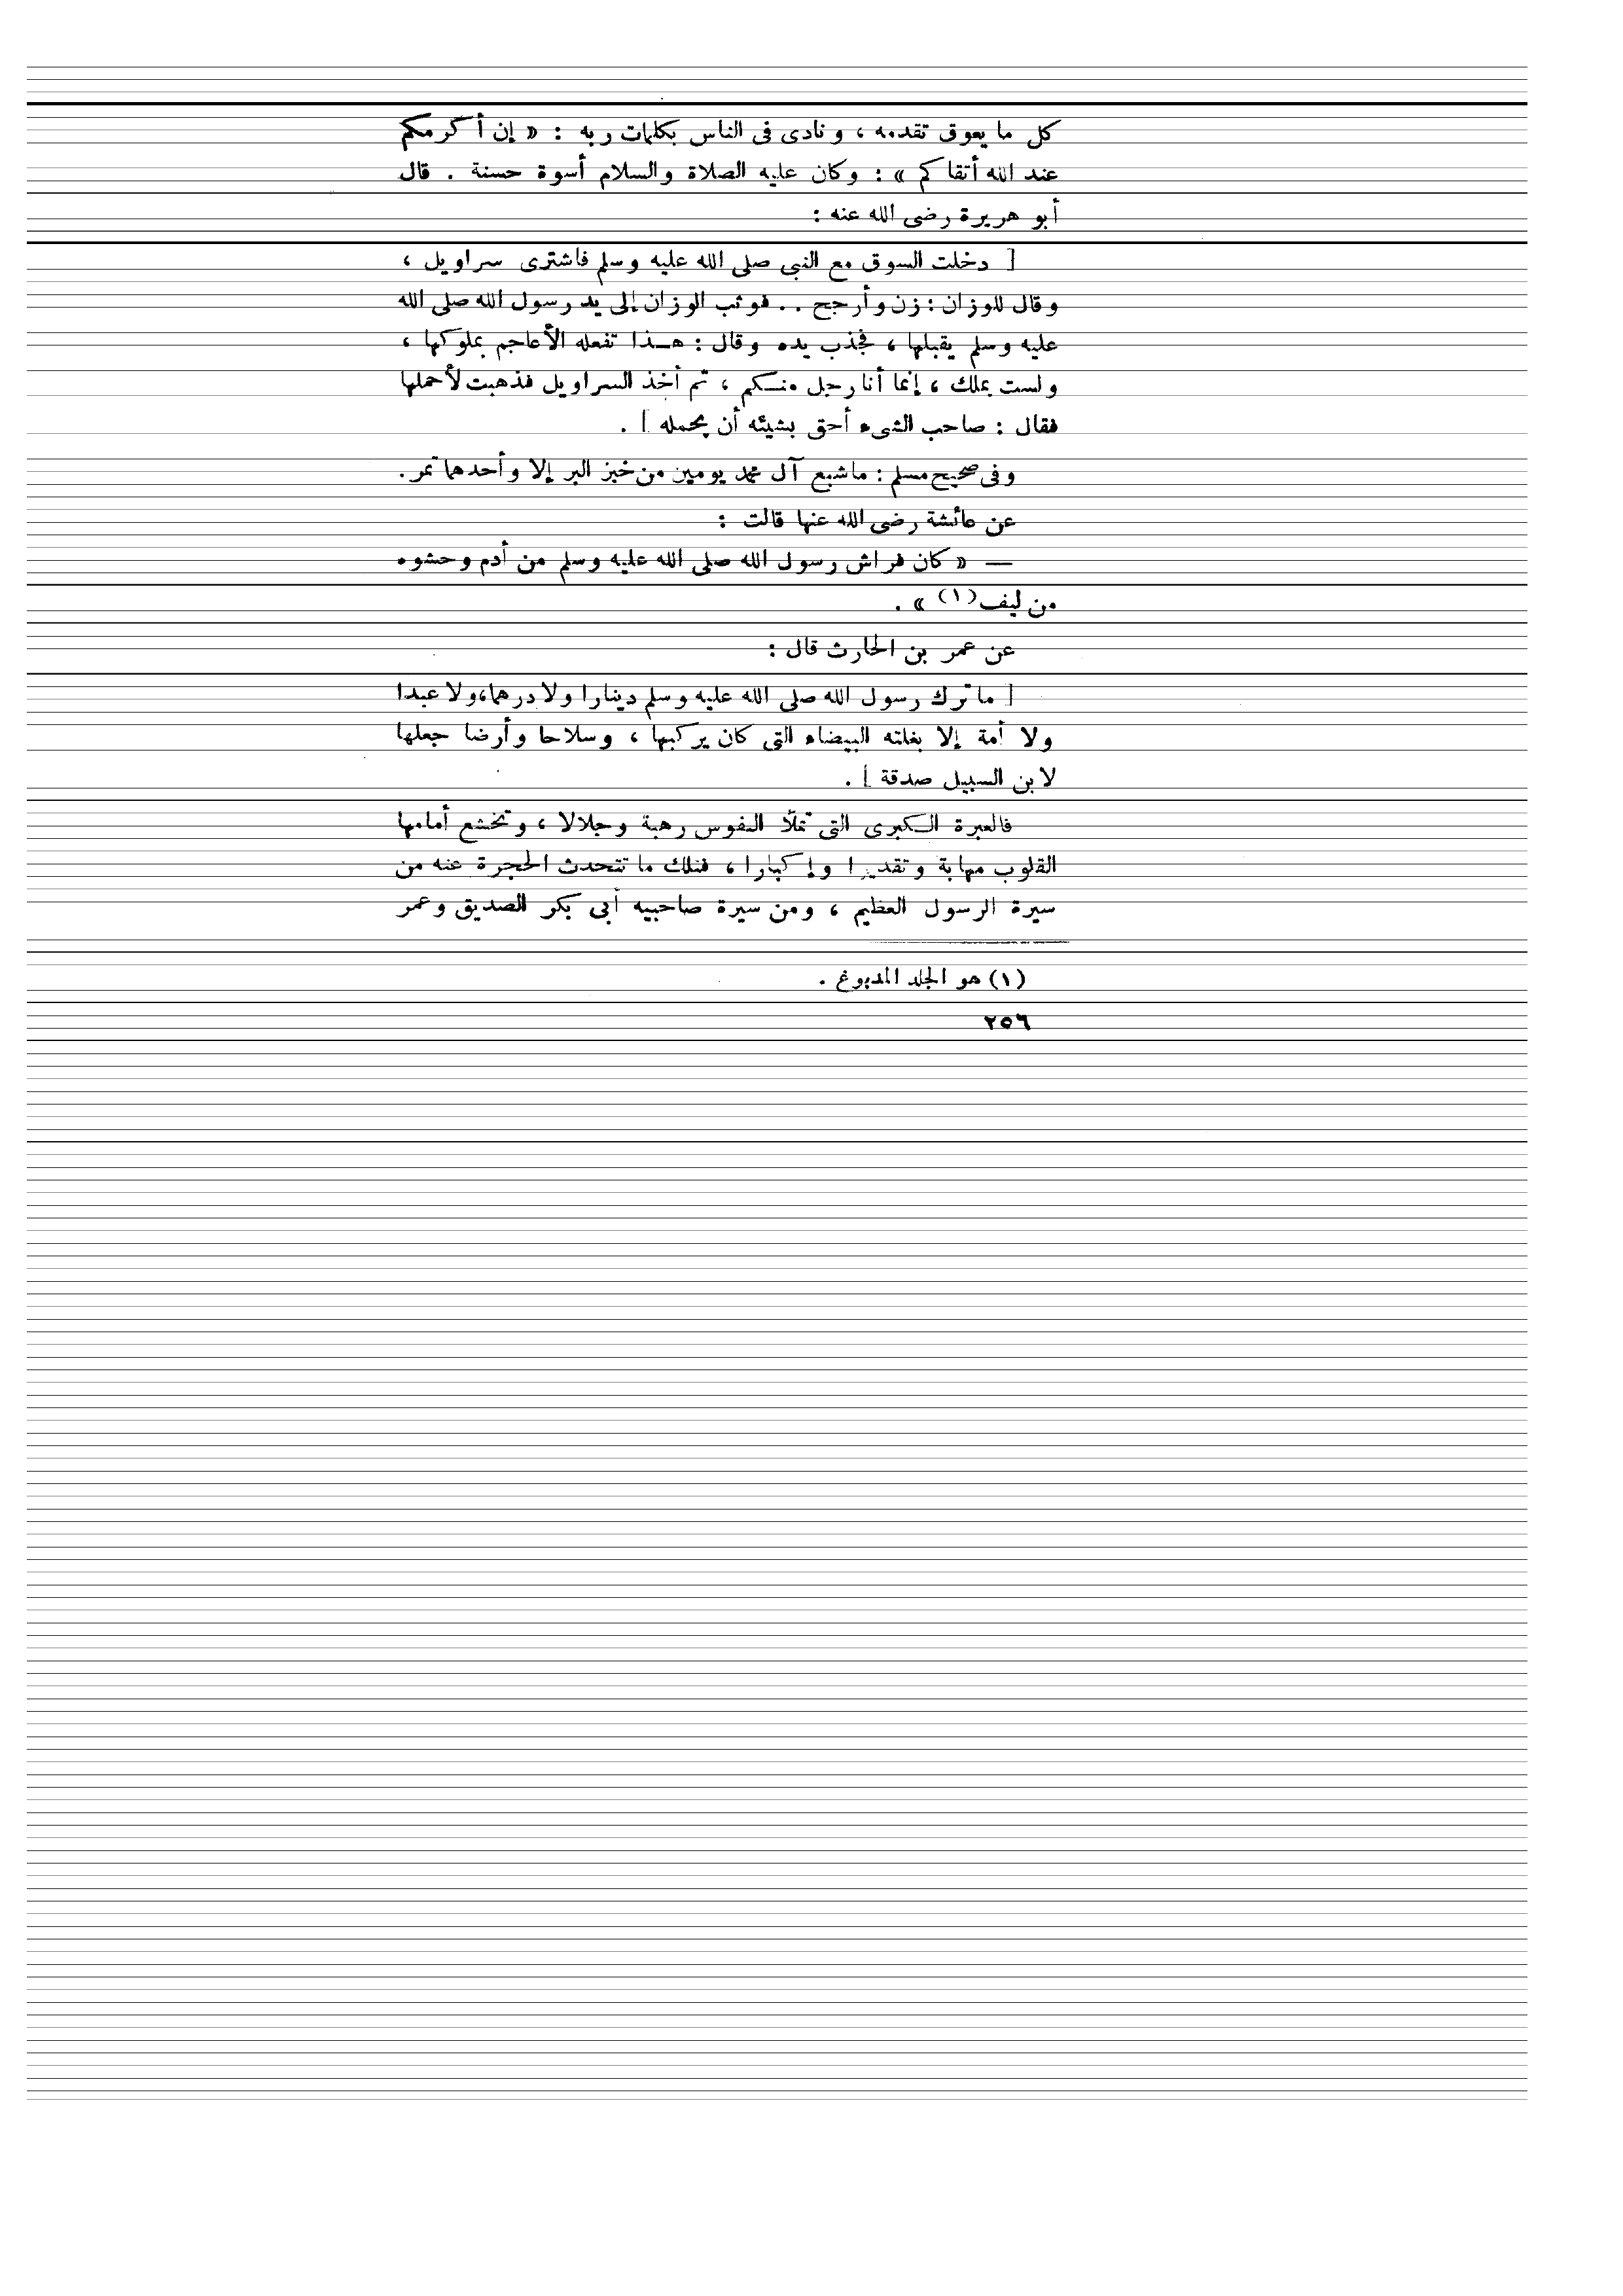 كل ما يعوق تقدمه ، ونادى فى الناس بكلمات ربه : « إن أكرمكم
عند الله أتقاكم » : وكان عليه الصلاة والسلام أسوة حسنة . قال
أبو هريرة رضى الله عنه :
[ دخلت السوق مع النبى صلى الله عليه وسلم فاشترى سراويل ،
وقال للوزان : زن وأرجح . . فوثب الوزان إلى يد رسول الله صلى الله
عليه وسلم يقبلها ، فجذب يده وقال : هـذا تفعله الأعاجم بملوكها ،
ولست بملك ، إنما أنا رجل منـكم ، ثم أخذ السراويل فذهبت لأحملها
فقال : صاحب الشىء أحق بشيئه أن يحمله ] .
وفى صحيح مسلم : ما شبع آل محمد يومين من خبز البر إلا وأحدهما تمر .
عن عائشة رضى الله عنها قالت :
— « كان فراش رسول الله صلى الله عليه وسلم من أدم وحشوه
من ليف (١) » .
عن عمر بن الحارث قال :
[ ما ترك رسول الله صلى الله عليه وسلم دينارا ولا درهما، ولا عبدا
ولا أمة إلا بغلته البيضاء التى كان يركبها ، وسلاحا وأرضا جعلها
لابن السبيل صدقة ] .
فالعبرة الـكبرى التى تملأ النفوس رهبة وجلالا ، وتخشع أمامها
القلوب مهابة وتقديرا وإكبارا ، فتلك ما تتحدث الحجرة عنه من
سيرة الرسول العظيم ، ومن سيرة صاحبيه أبى بكر الصديق وعمر
(١) هو الجلد المدبوغ .
٢٥٦